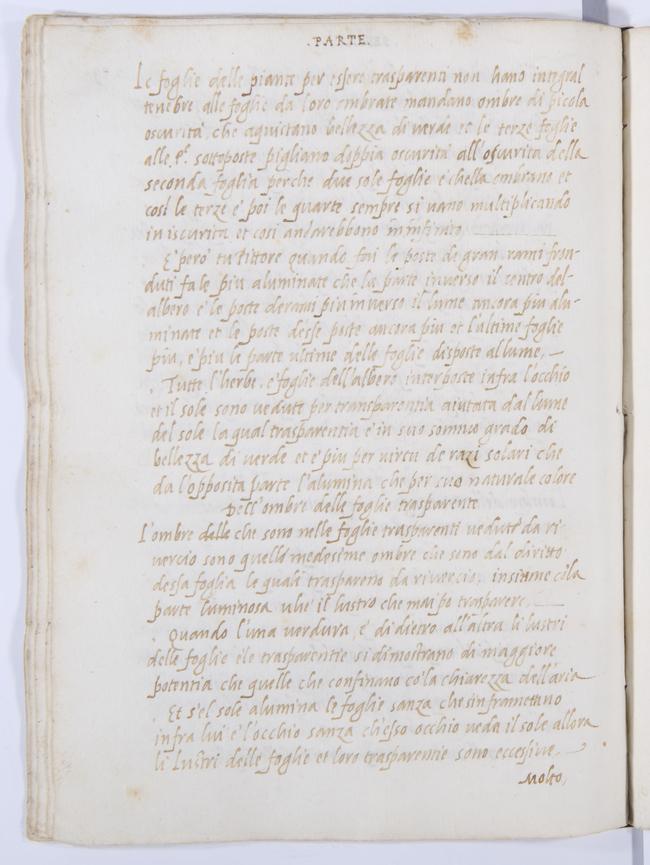 . PARTE.
Le foglie delle piante per essere trasparenti non hano integral
tenebre alle foglie da loro ombrate mandano ombre di picola
oscurita, che aquistano bellezza di verde et le terze foglie
alle p.e sottoposte pigliano doppia oscurita all'oscurita della
seconda foglia perche due sole foglie e chella ombrano et
cosi le terze e poi le quarte sempre si vano multiplicando
in iscurita et cosi andarebbono in infinito
E pero tu Pittore quando fai le poste de gran rami fron-
duti fa le piu aluminate che la parte inverso il centro del-
albero e le poste de rami piu inverso il lume ancora piu alu-
minate et le poste desse poste ancora piu et l'ultime foglie
piu, e piu le parte ultime delle foglie disposte al lume, —
. Tutte l'herbe, e foglie dell'albero interposte infra l'occhio
et il sole sono vedute per transparentia aiutata dal lume
del sole la qual trasparentia e in suo sommo grado di
bellezza di verde et e piu per virtu de razi solari che
da l'opposita parte l'alumina che per suo naturale colore
Dell'ombre delle foglie trasparente
L'ombre delle che sono nelle foglie trasparenti vedute da ri-
vercio sono quelle medesime ombre che sono dal diritto
dessa foglia le quali traspareno da rivercio, insieme co'la
parte luminosa vhe' il lustro che mai po trasparere, —
. Quando l'una verdura, e' di dietro all'altra li lustri
delle foglie e le trasparentie si dimostrano di maggiore
potentia che quelle che confinano co'la chiarezza dell'aria
. Et s'el sole alumina le foglie sanza che s'inframettano
infra lui e l'occhio sanza ch'esso occhio veda il sole allora
li lustri delle foglie et loro trasparentie sono eccessive —
Molto,